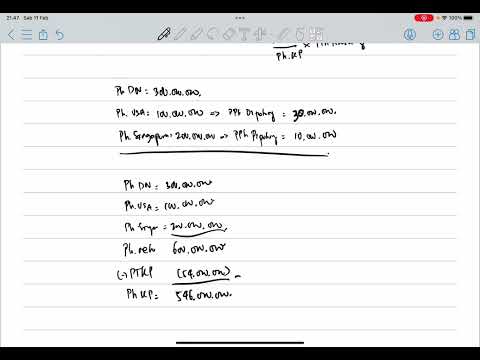 21.47 Sab 11 Feb
100%
Ph.KP
Ph DN = 300.000.000
Ph. USA = 100.000.000 => PPh Dipotong = 30.000.000
Ph. Singapura = 200.000.000 => PPh Dipotong = 10.000.000
Ph DN = 300.000.000
Ph.USA = 100.000.000
Ph Singa = 200.000.000
Ph. neto 600.000.000
(-) PTKP (54.000.000)
Ph KP = 546.000.000